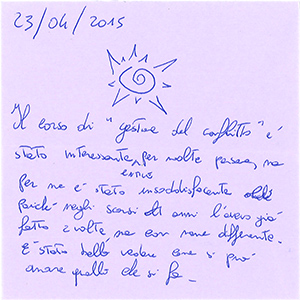 23/04/2015
Il corso di "gestione del conflitto" è
stato interessante, per molte persone, ma
per me è stato insoddisfacente
poiché negli scorsi anni l'avevo già
fatto 2 volte ma con nome differente.
È stato bello vedere come si può
amare quello che si fa_